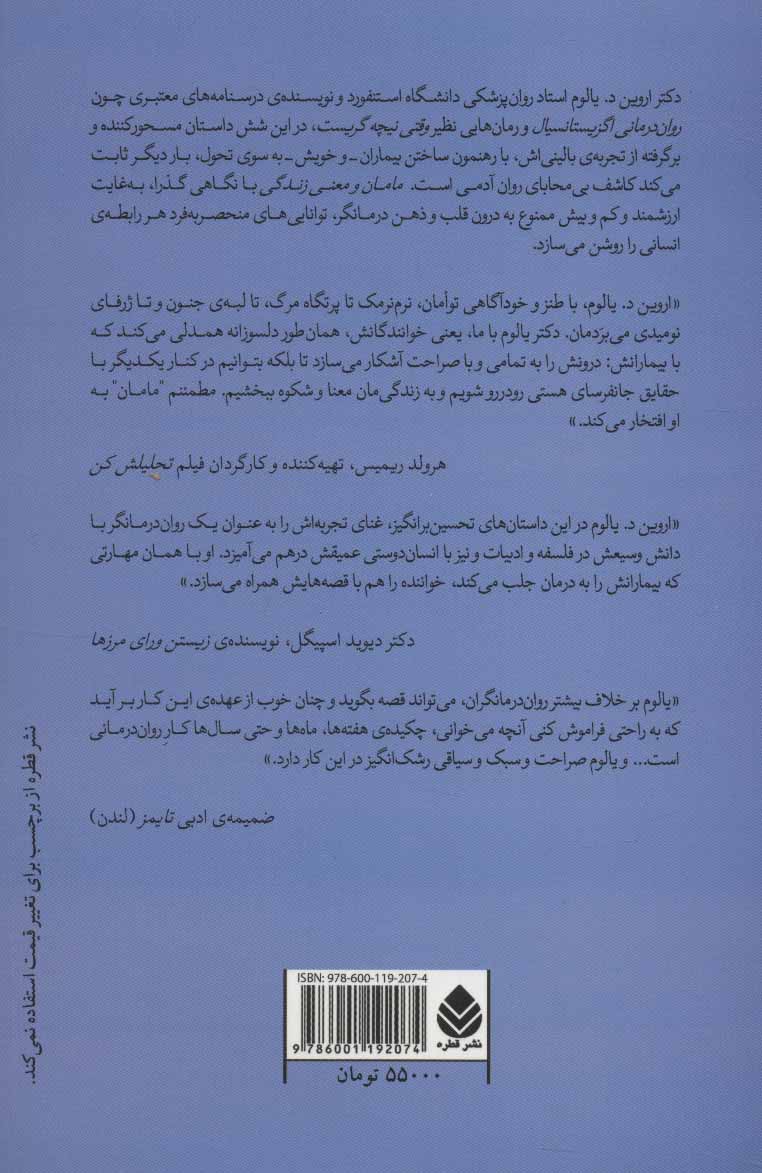 دکتر اروین د. یالوم استاد روان‌پزشکی دانشگاه استنفورد و نویسنده‌ی درسنامه‌های معتبری چون
روان‌درمانی اگزیستانسیال و رمان‌هایی نظیر وقتی نیچه گریست، در این شش داستان مسحورکننده و
برگرفته از تجربه‌ی بالینی‌اش، با رهنمون ساختن بیماران ـ و خویش ـ به سوی تحول، بار دیگر ثابت
می‌کند کاشف بی‌محابای روان آدمی است. مامان و معنی زندگی با نگاهی گذرا، به‌غایت
ارزشمند و کم و بیش ممنوع به درون قلب و ذهن درمانگر، توانایی‌های منحصربه‌فرد هر رابطه‌ی
انسانی را روشن می‌سازد.
«اروین د. یالوم، با طنز و خودآگاهی توأمان، نرم‌نرمک تا پرتگاه مرگ، تا لبه‌ی جنون و تا ژرفای
نومیدی می‌بردمان. دکتر یالوم با ما، یعنی خوانندگانش، همان‌طور دلسوزانه همدلی می‌کند که
با بیمارانش: درونش را به تمامی و با صراحت آشکار می‌سازد تا بلکه بتوانیم در کنار یکدیگر با
حقایق جانفرسای هستی رودررو شویم و به زندگی‌مان معنا و شکوه ببخشیم. مطمئنم "مامان" به
او افتخار می‌کند.»
هرولد ریمیس، تهیه‌کننده و کارگردان فیلم تحلیلش کن
«اروین د. یالوم در این داستان‌های تحسین‌برانگیز، غنای تجربه‌اش را به عنوان یک روان‌درمانگر با
دانش وسیعش در فلسفه و ادبیات و نیز با انسان‌دوستی عمیقش درهم می‌آمیزد. او با همان مهارتی
که بیمارانش را به درمان جلب می‌کند، خواننده را هم با قصه‌هایش همراه می‌سازد.»
دکتر دیوید اسپیگل، نویسنده‌ی زیستن ورای مرزها
«یالوم بر خلاف بیشتر روان‌درمانگران، می‌تواند قصه بگوید و چنان خوب از عهده‌ی این کار بر آید
که به راحتی فراموش کنی آنچه می‌خوانی، چکیده‌ی هفته‌ها، ماه‌ها و حتی سال‌ها کارِ روان‌درمانی
است... و یالوم صراحت و سبک و سیاقی رشک‌انگیز در این کار دارد.»
ضمیمه‌ی ادبی تایمز (لندن)
نشر قطره از برچسب برای تغییر قیمت استفاده نمی‌کند.
ISBN: 978-600-119-207-4
9 786001 192074
نشر قطره
۵۵۰۰۰ تومان